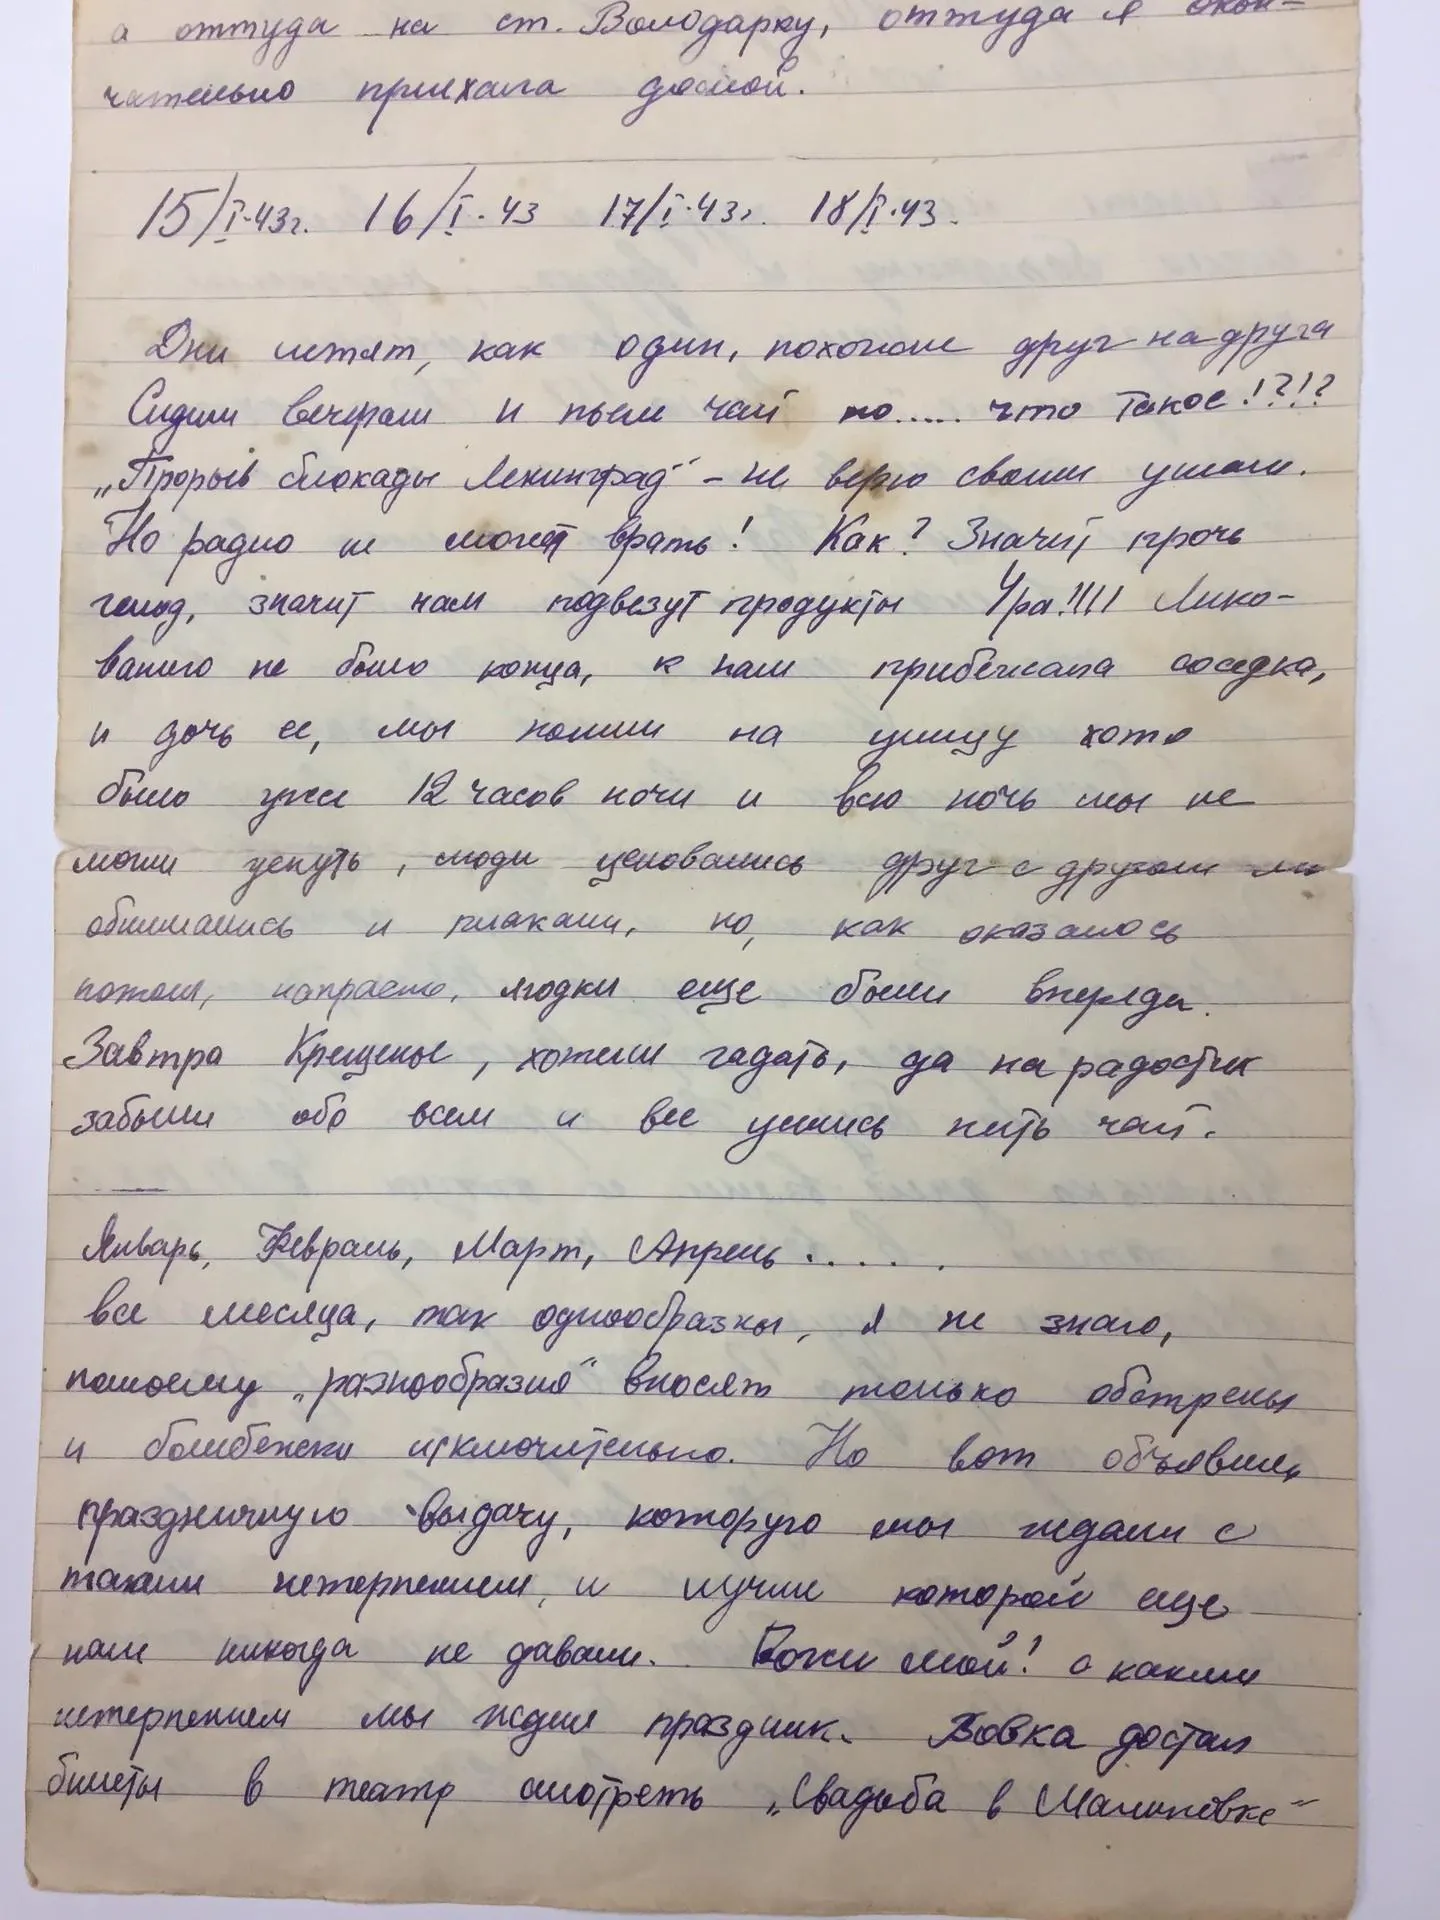 а оттуда на ст. Володарку, оттуда я окон-
чательно приехала домой.
15/I·43г. 16/I·43 17/I·43г. 18/I·43.
Дни летят, как один, похожие друг на друга
Сидим вечерам и пьем чай но..... что такое!?!?
„Прорыв блокады Ленинград" - не верю своим ушам.
Но радио не может врать! Как? Значит прочь
голод, значит нам подвезут продукты Ура!!!! Лико-
ванию не было конца, к нам прибежала соседка,
и дочь ее, мы пошли на улицу хотя
было уже 12 часов ночи и всю ночь мы не
могли уснуть, люди целовались друг с другом
обнимались и плакали, но, как оказалось
потом, напрасно, ягодки еще были впереди.
Завтра Крещенье, хотели гадать, да на радостях
забыли обо всем и все уселись пить чай.
Январь, Февраль, Март, Апрель .....
все месяца, так однообразны, я не знаю,
помоему „разнообразия" вносят только обстрелы
и бомбежки исключительно. Но вот объявили
праздничную выдачу, которую мы ждали с
таким нетерпением, и лучше которой еще
нам никогда не давали. Боже мой! с каким
нетерпением мы ждем праздник. Вовка достал
билеты в театр смотреть „Свадьба в Малиновке"